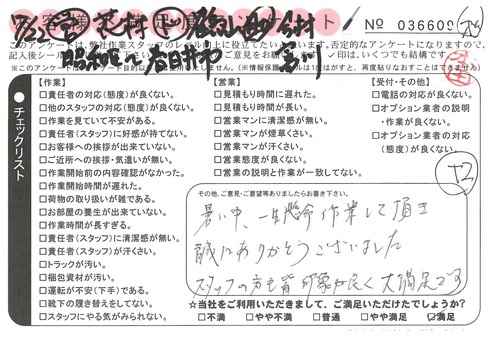 No 036609
このアンケートは、弊社作業スタッフのレベル向上に役立てたい
否定的なアンケートになりますので、
記入後シール
ご意見をお願い
印は、いくつでも結構です。
※このアンケート
(※情報保護シールは1度はがすと、再度貼りなおすことはできません)
チェックリスト
【作業】
□責任者の対応(態度)が良くない。
□他のスタッフの対応(態度)が良くない。
□作業を見ていて不安がある。
□責任者(スタッフ)に好感が持てない。
□お客様への挨拶が出来ていない。
□ご近所への挨拶・気遣いが無い。
□作業開始前の内容確認がなかった。
□作業開始時間が遅れた。
□荷物の取り扱いが雑である。
□お部屋の養生が出来ていない。
□作業時間が長すぎる。
□責任者(スタッフ)に清潔感が無い。
□責任者(スタッフ)が汗くさい。
□トラックが汚い。
□梱包資材が汚い。
□運転が不安(下手)である。
□靴下の履き替えをしてない。
□スタッフにやる気がみられない。
【営業】
□見積もり時間に遅れた。
□見積もり時間が長い。
□営業マンに清潔感が無い。
□営業マンが煙草くさい。
□営業マンが汗くさい。
□営業態度が良くない。
□営業の説明と作業が一致してない。
【受付・その他】
□電話の対応が良くない。
□オプション業者の説明
・作業が良くない。
□オプション業者の対応
(態度)が良くない。
その他、ご意見・ご要望等ありましたらお書き下さい。
暑い中、一生懸命作業して頂き
誠にありがとうございました
スタッフの方も皆印象が良く大満足です
☆当社をご利用いただきまして、ご満足いただけたでしょうか?
□不満 □やや不満 □普通 □やや満足 ☑満足